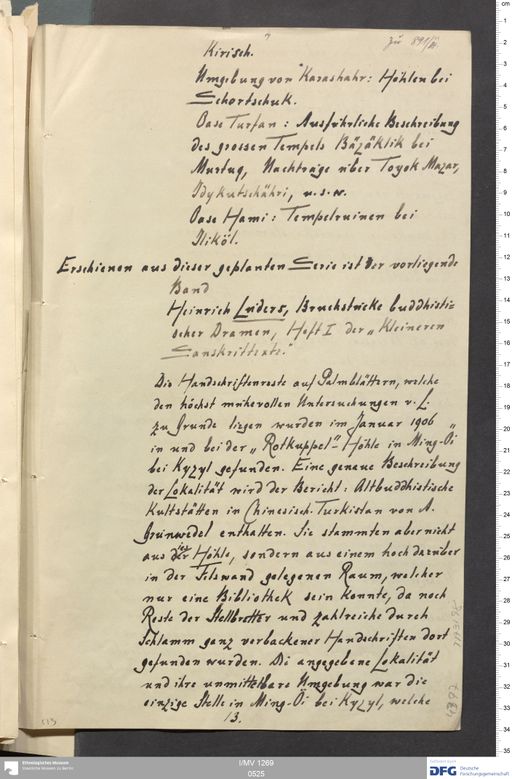 zu 891/11.
Kirisch.
Umgebung von Karashahr: Höhlen bei
Schortschuk.
Oase Turfan: Ausführliche Beschreibung
des grossen Tempels Bäzäklik bei
Murtuq, Nachträge über Toyok Mazar,
Idykutschähri, u.s.w.
Oase Hami: Tempelruinen bei
Iliköl.
Erschienen aus dieser geplanten Serie ist der vorliegende
Band
Heinrich Lüders, Bruchstücke buddhisti-
scher Dramen, Heft I der „Kleineren
Sanskrittexte."
Die Handschriftenreste auf Palmblättern, welche
den höchst mühevollen Untersuchungen v. L.
zu Grunde liegen wurden im Januar 1906
in und bei der „Rotkuppel"-Höhle in „Ming-Öi
bei Kyzyl gefunden. Eine genaue Beschreibung
der Lokalität wird der Bericht: Altbuddhistische
Kultstätten in Chinesisch-Turkistan von A.
Grünwedel enthalten. Sie stammten aber nicht
aus dieser Höhle, sondern aus einem hoch darüber
in der Felswand gelegenen Raum, welcher
nur eine Bibliothek sein konnte, da noch
Reste der Stellbretter und zahlreiche durch
Schlamm ganz verbackener Handschriften dort
gefunden wurden. Di angegebene Lokalität
und ihre unmittelbare Umgebung war die
einzige Stelle in Ming-Öi bei Kyzyl, welche
13.
113
Ethnologisches Museum
Staatliche Museen zu Berlin
I/MV 1269
0525
Gefördert durch
DFG Deutsche
Forschungsgemeinschaft